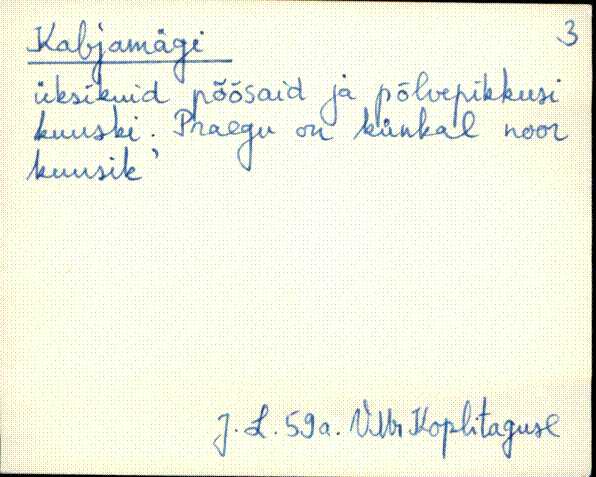 Kabjamägi 3
üksikuid põõsaid ja põlvepikkusi
kuuski. Praegu on künkal noor
kuusik'
J. L. 59a. Koplitaguse